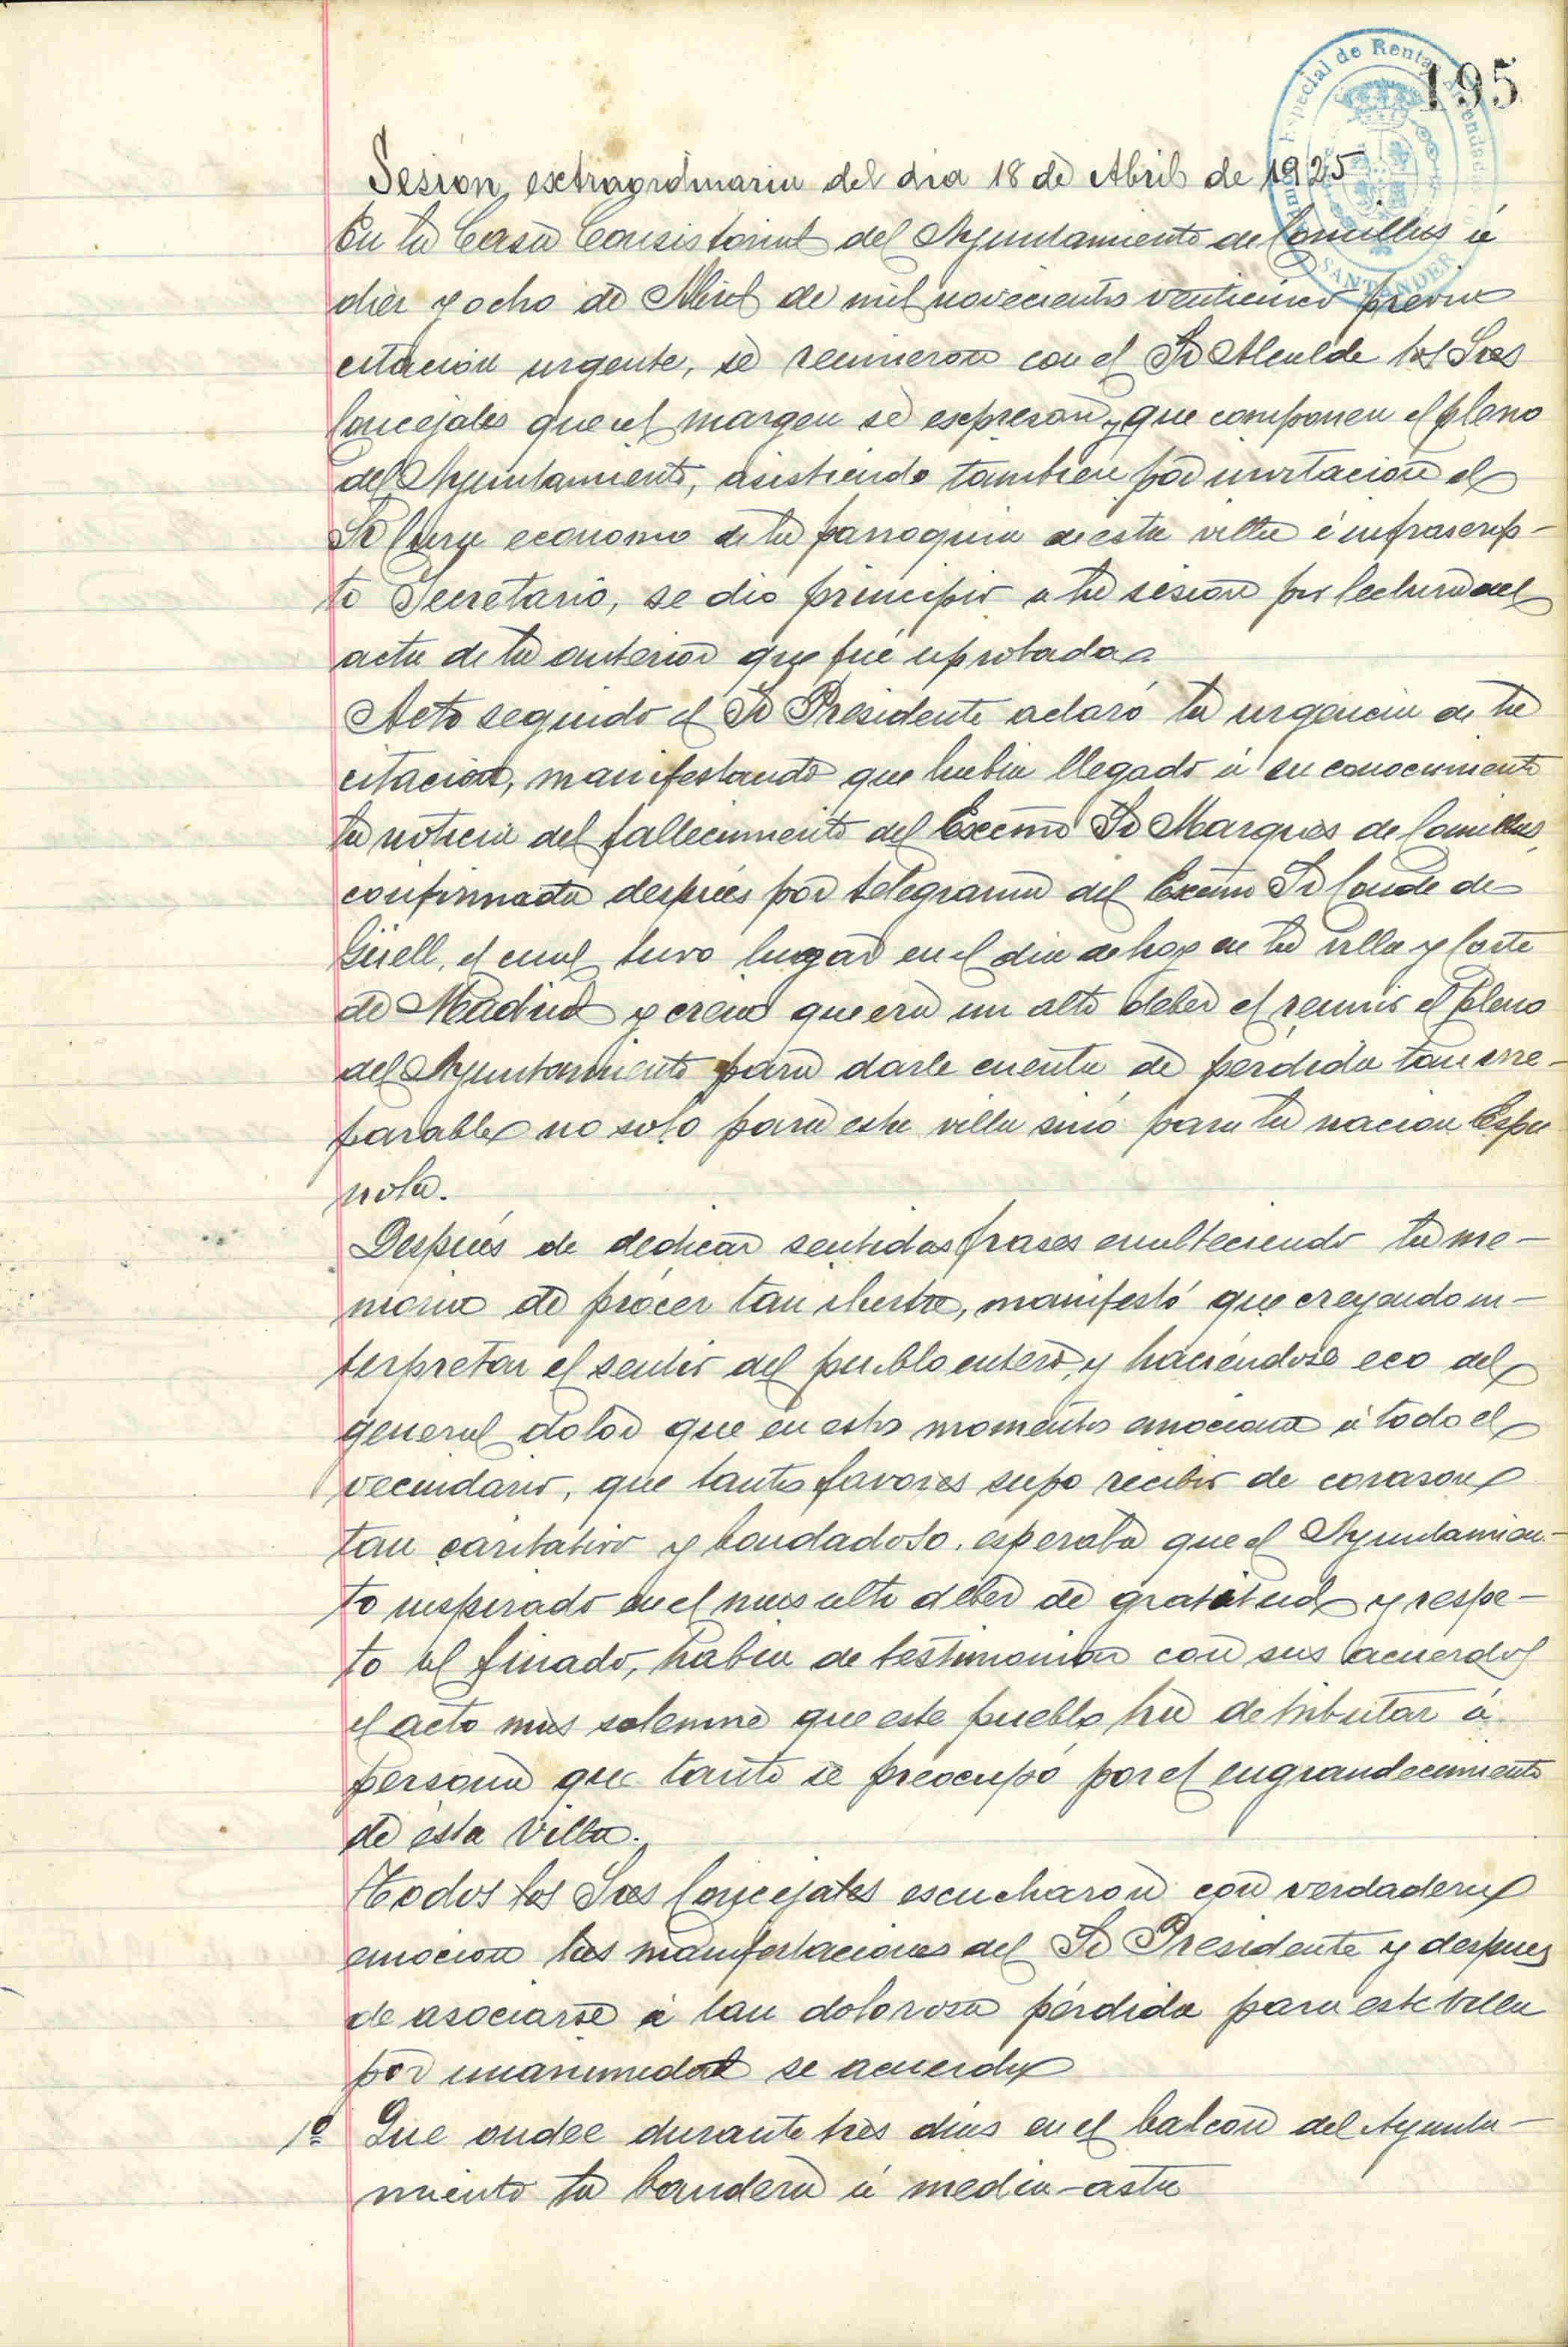 195
Especial de Rentas Arrendadas
SANTANDER
Sesion, esctraordinaria del dia 18 de Abril de 1925
En la Casa Consistorial del Ayuntamiento de Comillas á
diez y ocho de Abril de mil novecientos venticinco previa
citación urgente, se reunieron con el Sr Alcalde los Sres
Concejales que al margen se espresan, y que componen el pleno
del Ayuntamiento, asistiendo tambien por invitacion el
Sr Cura economo de la parroquia de esta villa é infrascrip-
to Secretario, se dio principio a la sesion por lectura del
acta de la anterior que fué aprobada
Acto seguido el Sr Presidente aclaró la urgencia de la
citacion, manifestando que habia llegado á su conocimiento
la noticia del fallecimiento del Excmo Sr Marqués de Comillas,
confirmada despues por telegrama del Excmo Sr Conde de
Güell, el cual tuvo lugar en el dia de hoy en la villa y Corte
de Madrid y creia que era un alto deber el reunir el pleno
del Ayuntamiento para darle cuenta de perdida tan irre-
parable no solo para esta villa sinó para la nacion Espa
nola.
Despues de dedicar sentidas frases enalteciendo la me-
moria de prócer tan ilustre, manifestó que creyendo in-
terpretar el sentir del pueblo entero, y haciéndose eco del
general dolor que en estos momentos emociona á todo el
vecindario, que tantos favores supo recibir de corason
tan caritativo y bondadoso, esperaba que el Ayuntamien-
to inspirado en el mas alto deber de gratitud y respe-
to al finado, habia de testimoniar con sus acuerdos
el acto mas solemne que este pueblo ha de tributar á
persona que tanto se preocupó por el engrandecimiento
de esta Villa.
Todos los Sres Concejales escucharon con verdadera
emocion las manifestaciones del Sr Presidente y despues
de asociarse á tan dolorosa pérdida para esta Villa
por unanimidad se acuerda
1º Que ondee durante tres dias en el balcon del Ayunta-
miento la bandera á media-asta